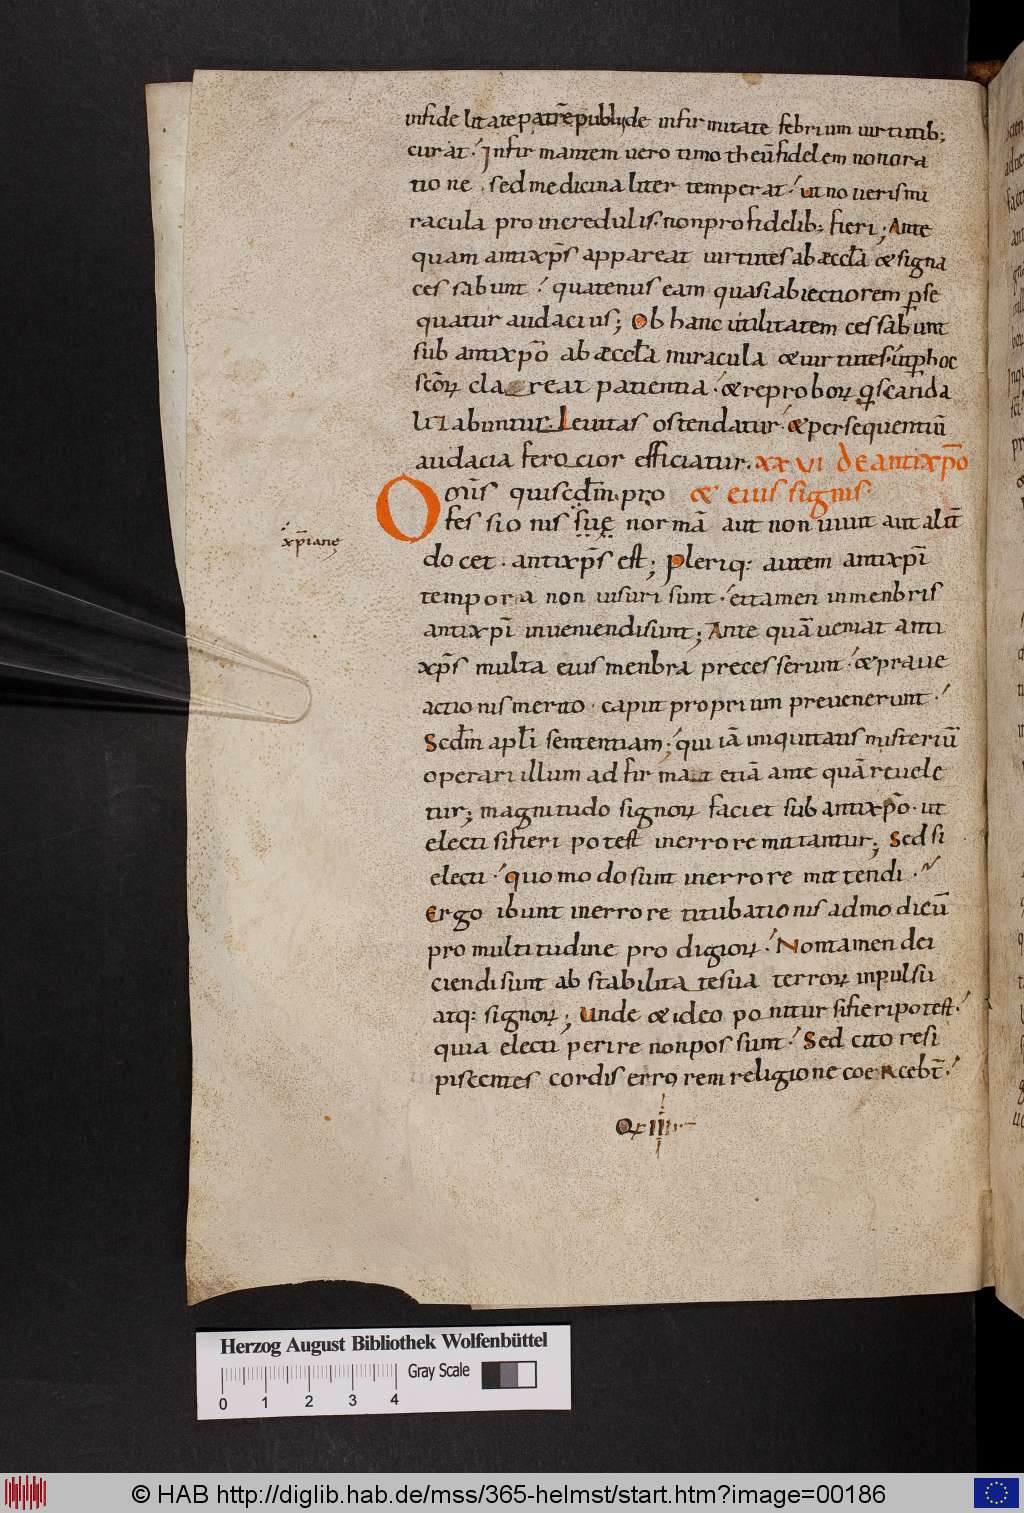 infidelitate patrē publii de infirmitate febrium virtutib;
curat. Infirmantem vero timotheū fidelem non ora
tione. sed medicinaliter temperat. ut noveris mi
racula pro incredulis. non pro fidelib; fieri; Ante
quam antixp̄s appareat virtutes ab æccl̄a & signa
cessabunt. quatenus eam quasi abiectiorem ꝑse
quatur audacius; Ob hanc utilitatem cessabunt
sub antixp̄o ab æccl̄a miracula & virtutes. ut ꝑ hoc
sc̄oꝝ clareat patientia. & reproboꝝ qi scanda
lizabuntur. Levitas ostendatur. & persequentiū
audacia ferocior efficiatur. xxvi de antixp̄o
Om̄is qui scdm̄. pro & eius signis.
fessionis suę normā aut non vivit aut alit̄
xp̄ianę
docet. antixp̄s est; Pleriq: autem antixp̄i
tempora non visuri sunt. & tamen in menbris
antixp̄i inveniendi sunt; Ante quā veniat anti
xp̄s multa eius menbra precesserunt. & prave
actionis merito. caput proprium prevenerunt.
Scdm̄ apl̄i sententiam; qui iā iniquitatis misteriū
operari illum adfirmat etiā ante quā revele
tur; magnitudo signoꝝ faciet sub antixp̄o. ut
electi si fieri potest in errore mittantur; Sed si
electi. quomodo sunt in errore mittendi.
Ergo ibunt in errore titubationis ad modicū
pro multitudine prodigioꝝ. Non tamen dei
ciendi sunt ab stabilitate sua terroꝝ inpulsu
atq: signoꝝ; Unde & ideo ponitur si fieri potest.
quia electi perire non possunt. Sed cito resi
piscentes cordis errorem religione coercebt̄.
Q̄ IIII
Herzog August Bibliothek Wolfenbüttel
Gray Scale
0 1 2 3 4
© HAB http://diglib.hab.de/mss/365-helmst/start.htm?image=00186